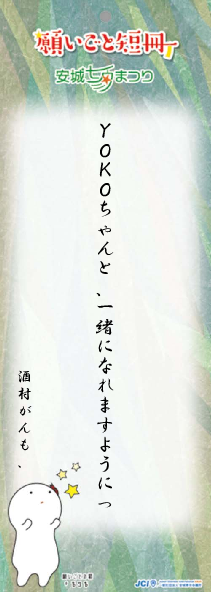 願いごと短冊
安城七夕まつり
YOKOちゃんと、一緒になれますようにっ
酒村がんも、
JCI